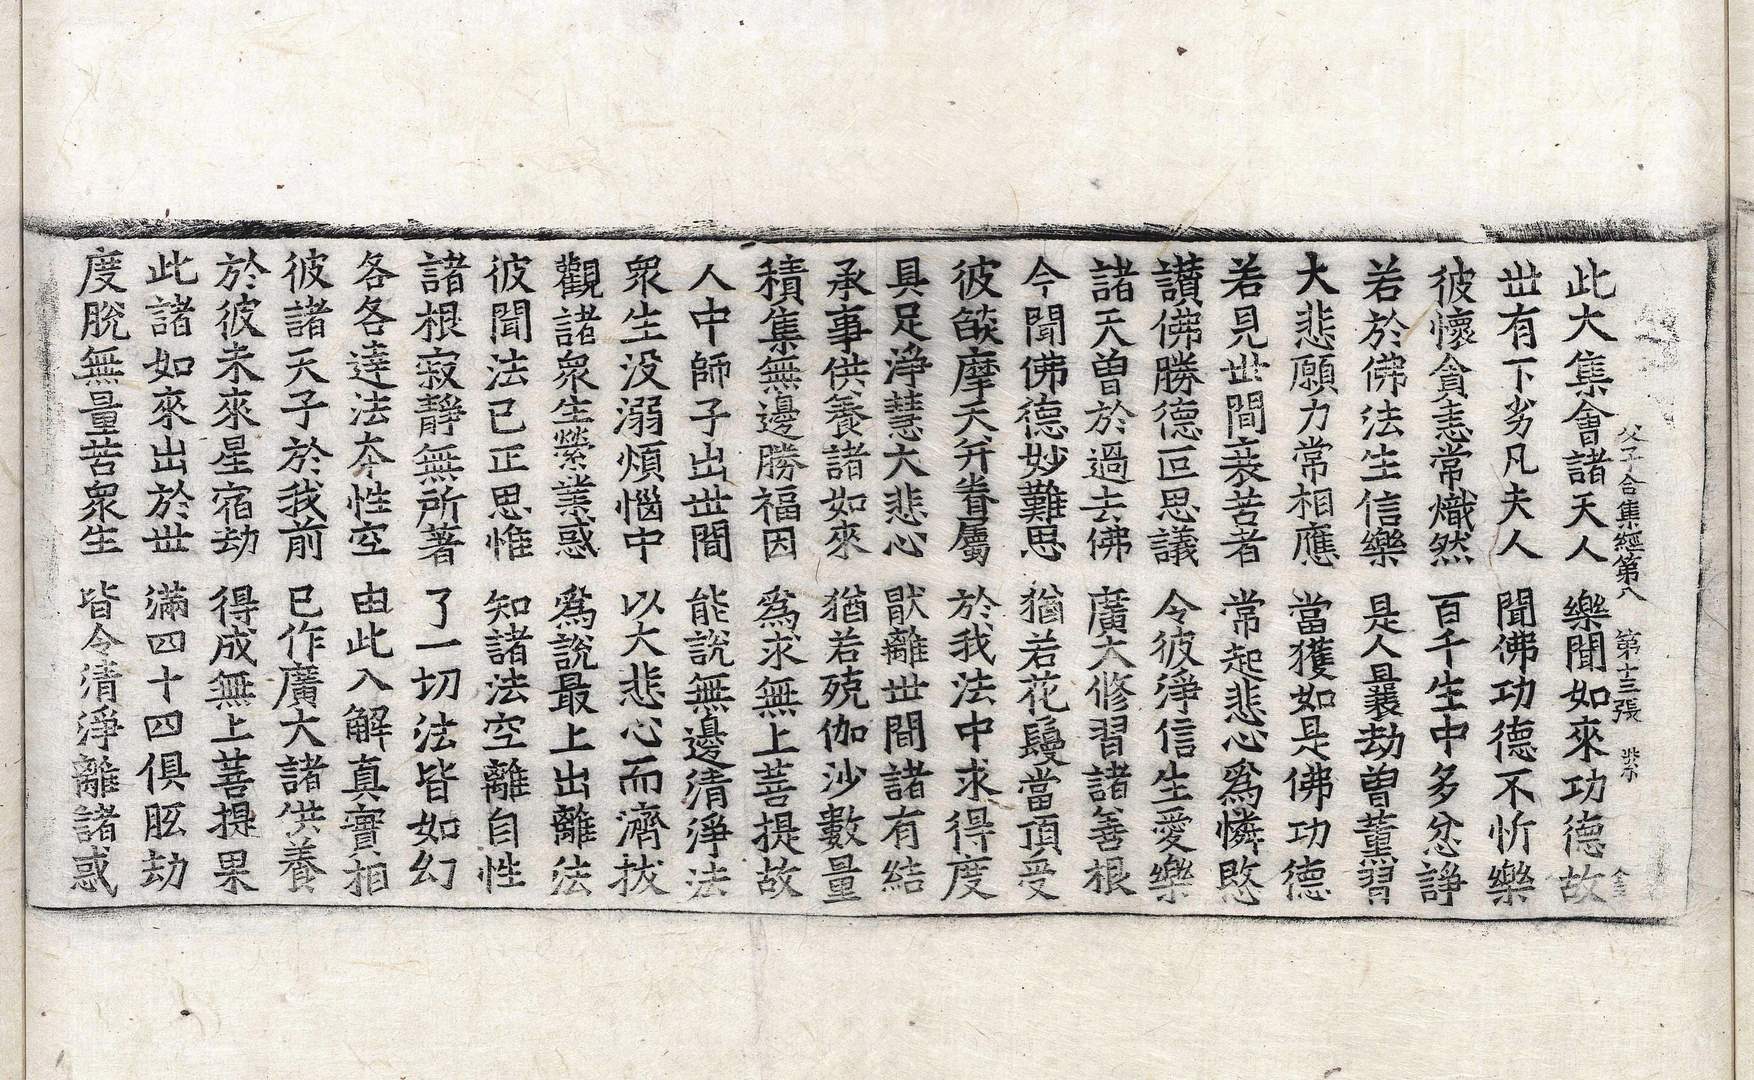 父子合集經第八　第十三張　紫
此大集會諸天人　樂聞如來功德故
世有下劣凡夫人　聞佛功德不忻樂
彼懷貪恚常熾然　百千生中多忿諍
若於佛法生信樂　是人曩劫曾薰習
大悲願力常相應　當獲如是佛功德
若見世間衰苦者　常起悲心爲憐愍
讚佛勝德叵思議　令彼淨信生愛樂
諸天曾於過去佛　廣大修習諸善根
今聞佛德妙難思　猶若花鬘當頂受
彼燄摩天并眷屬　於我法中求得度
具足淨慧大悲心　猒離世間諸有結
承事供養諸如來　猶若殑伽沙數量
積集無邊勝福因　爲求無上菩提故
人中師子出世間　能說無邊清淨法
衆生没溺煩惱中　以大悲心而濟拔
觀諸衆生縈業惑　爲說最上出離法
彼聞法已正思惟　知諸法空離自性
諸根寂靜無所著　了一切法皆如幻
各各達法本性空　由此入解真實相
彼諸天子於我前　已作廣大諸供養
於彼未來星宿劫　得成無上菩提果
此諸如來出於世　滿四十四俱胝劫
度脫無量苦衆生　皆令清淨離諸惑